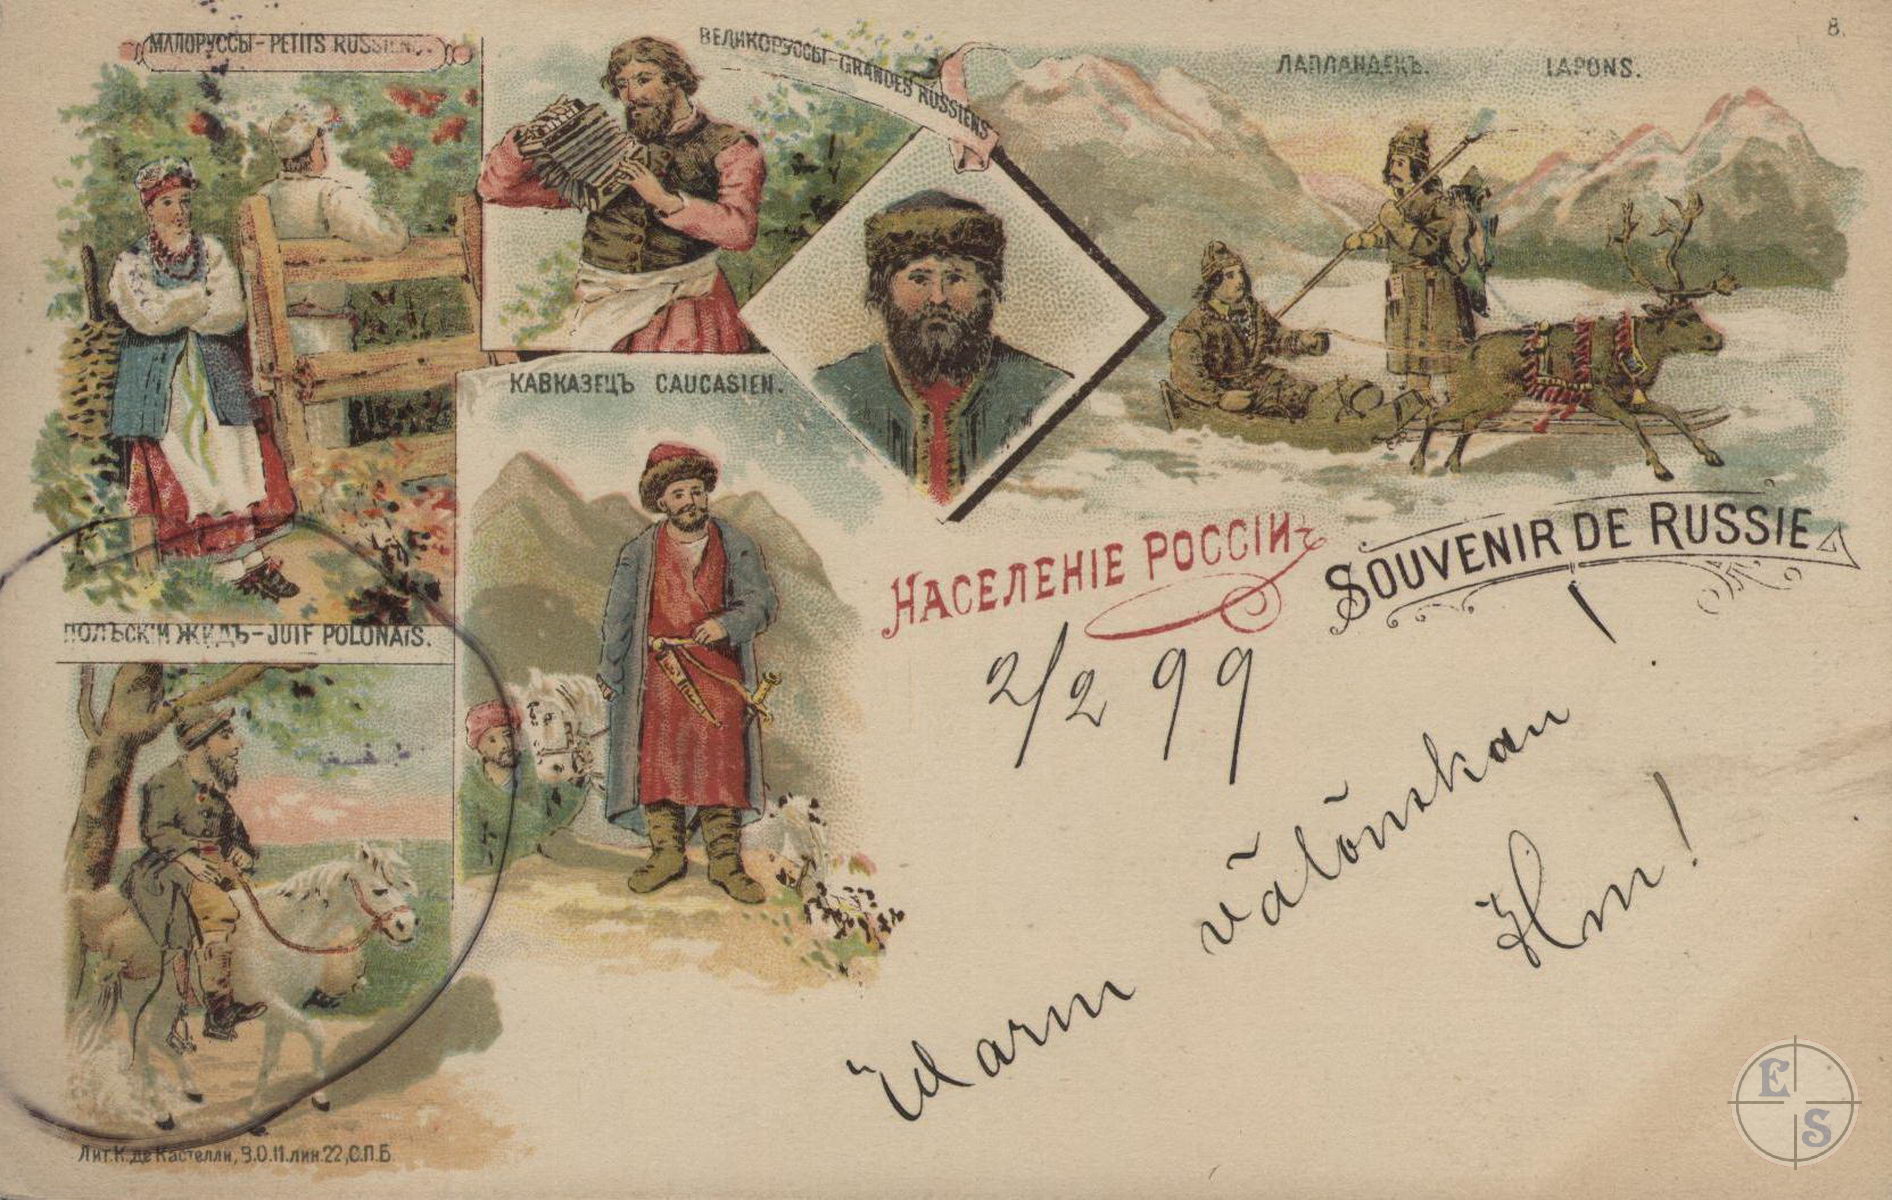 8.
МАЛОРУССЫ-PETITS RUSSIENS.
ВЕЛИКОРУССЫ-GRANDES RUSSIENS
ЛАПЛАНДЕКЪ. LAPONS.
КАВКАЗЕЦЪ CAUCASIEN.
НАСЕЛЕНІЕ РОССІИ
SOUVENIR DE RUSSIE
ПОЛЬСКИ ЖИДЪ-JUIF POLONAIS.
2/2 99
Warm
Лит.К.де Кастелли, В.О.11.лин.22,С.П.Б.
E S